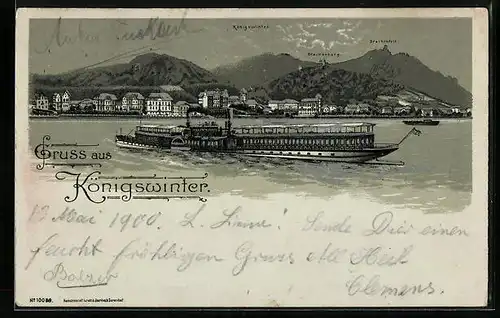 Königswinter
Drachenburg
Drachenfels
Gruss aus
Königswinter.
13 Mai 1900. L. Sende Dir einen
feucht fröhligen Gruss All Heil
Balzer Clemens.
No 10086.